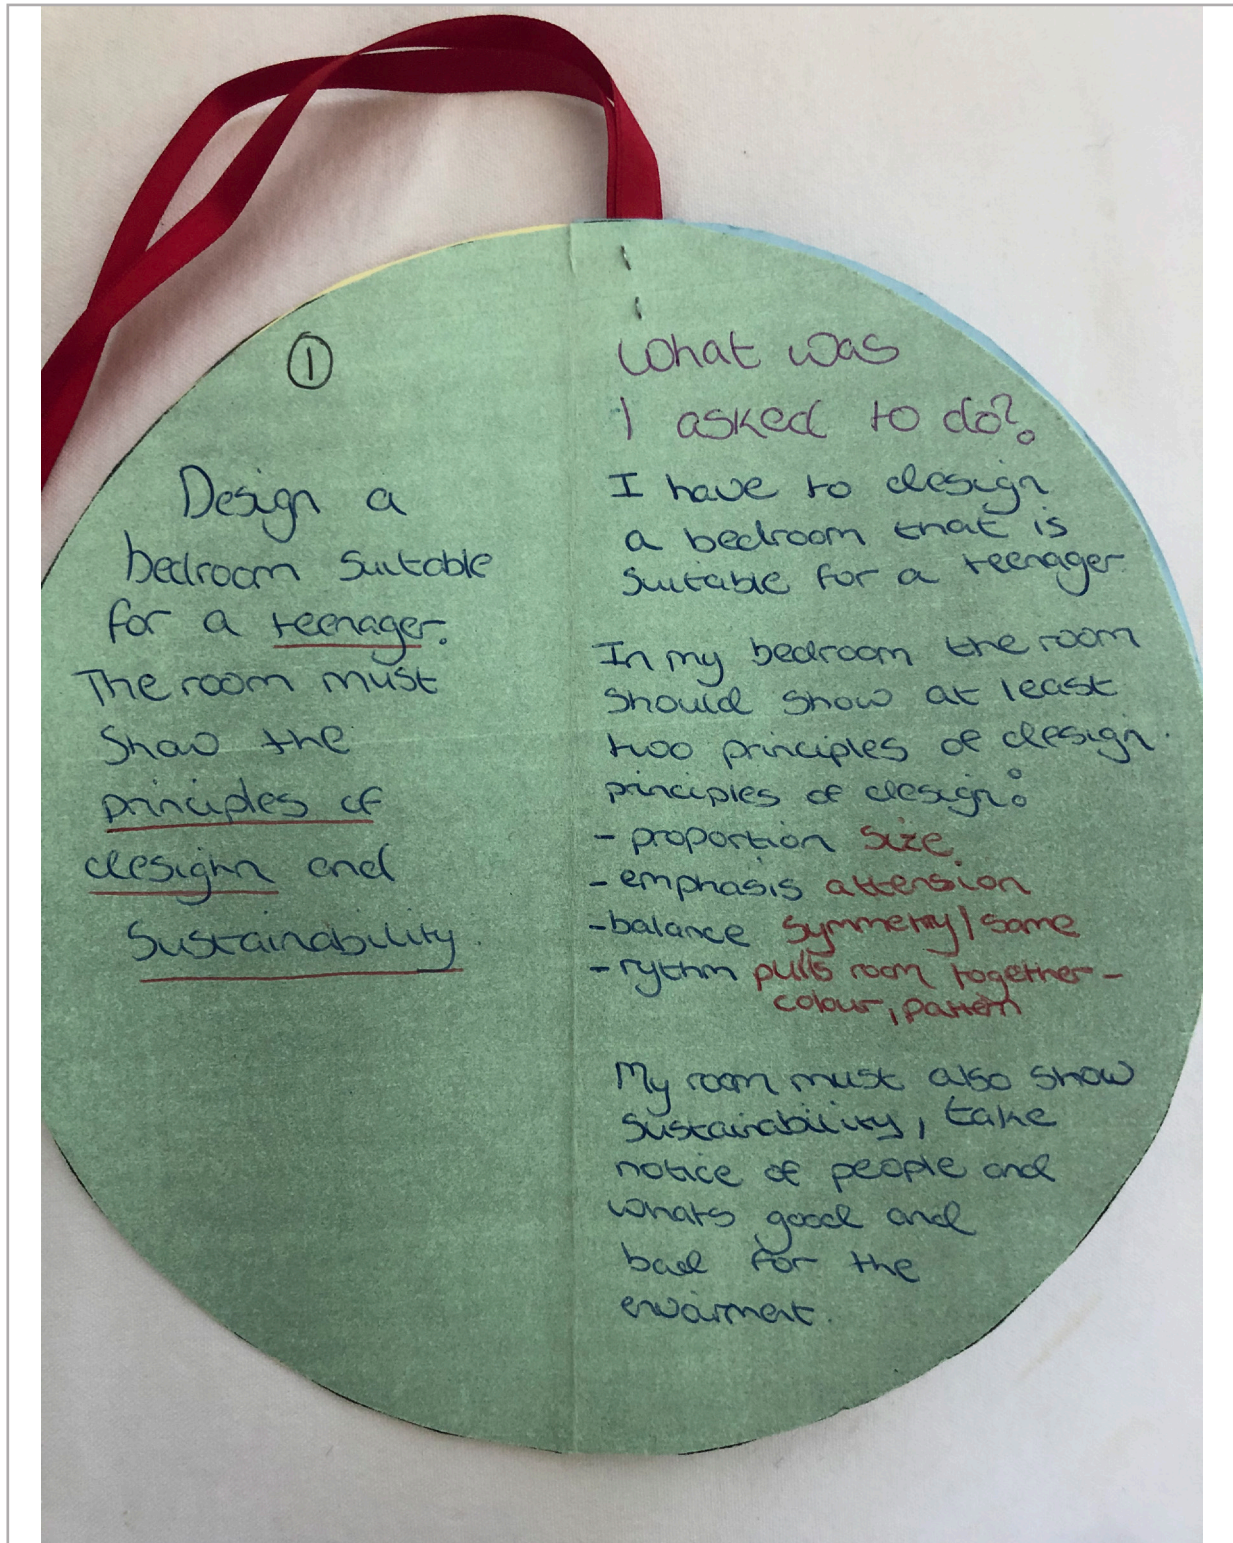 ①
Design a
bedroom suitable
for a teenager.
The room must
show the
principles of
design and
Sustainability.
What was
I asked to do?
I have to design
a bedroom that is
suitable for a teenager
In my bedroom the room
should show at least
two principles of design.
principles of design:
- proportion size.
- emphasis attension
- balance symmetry/same
- rythm pulls room together -
colour, pattern
My room must also show
sustainability, take
notice of people and
whats good and
bad for the
enviarment.